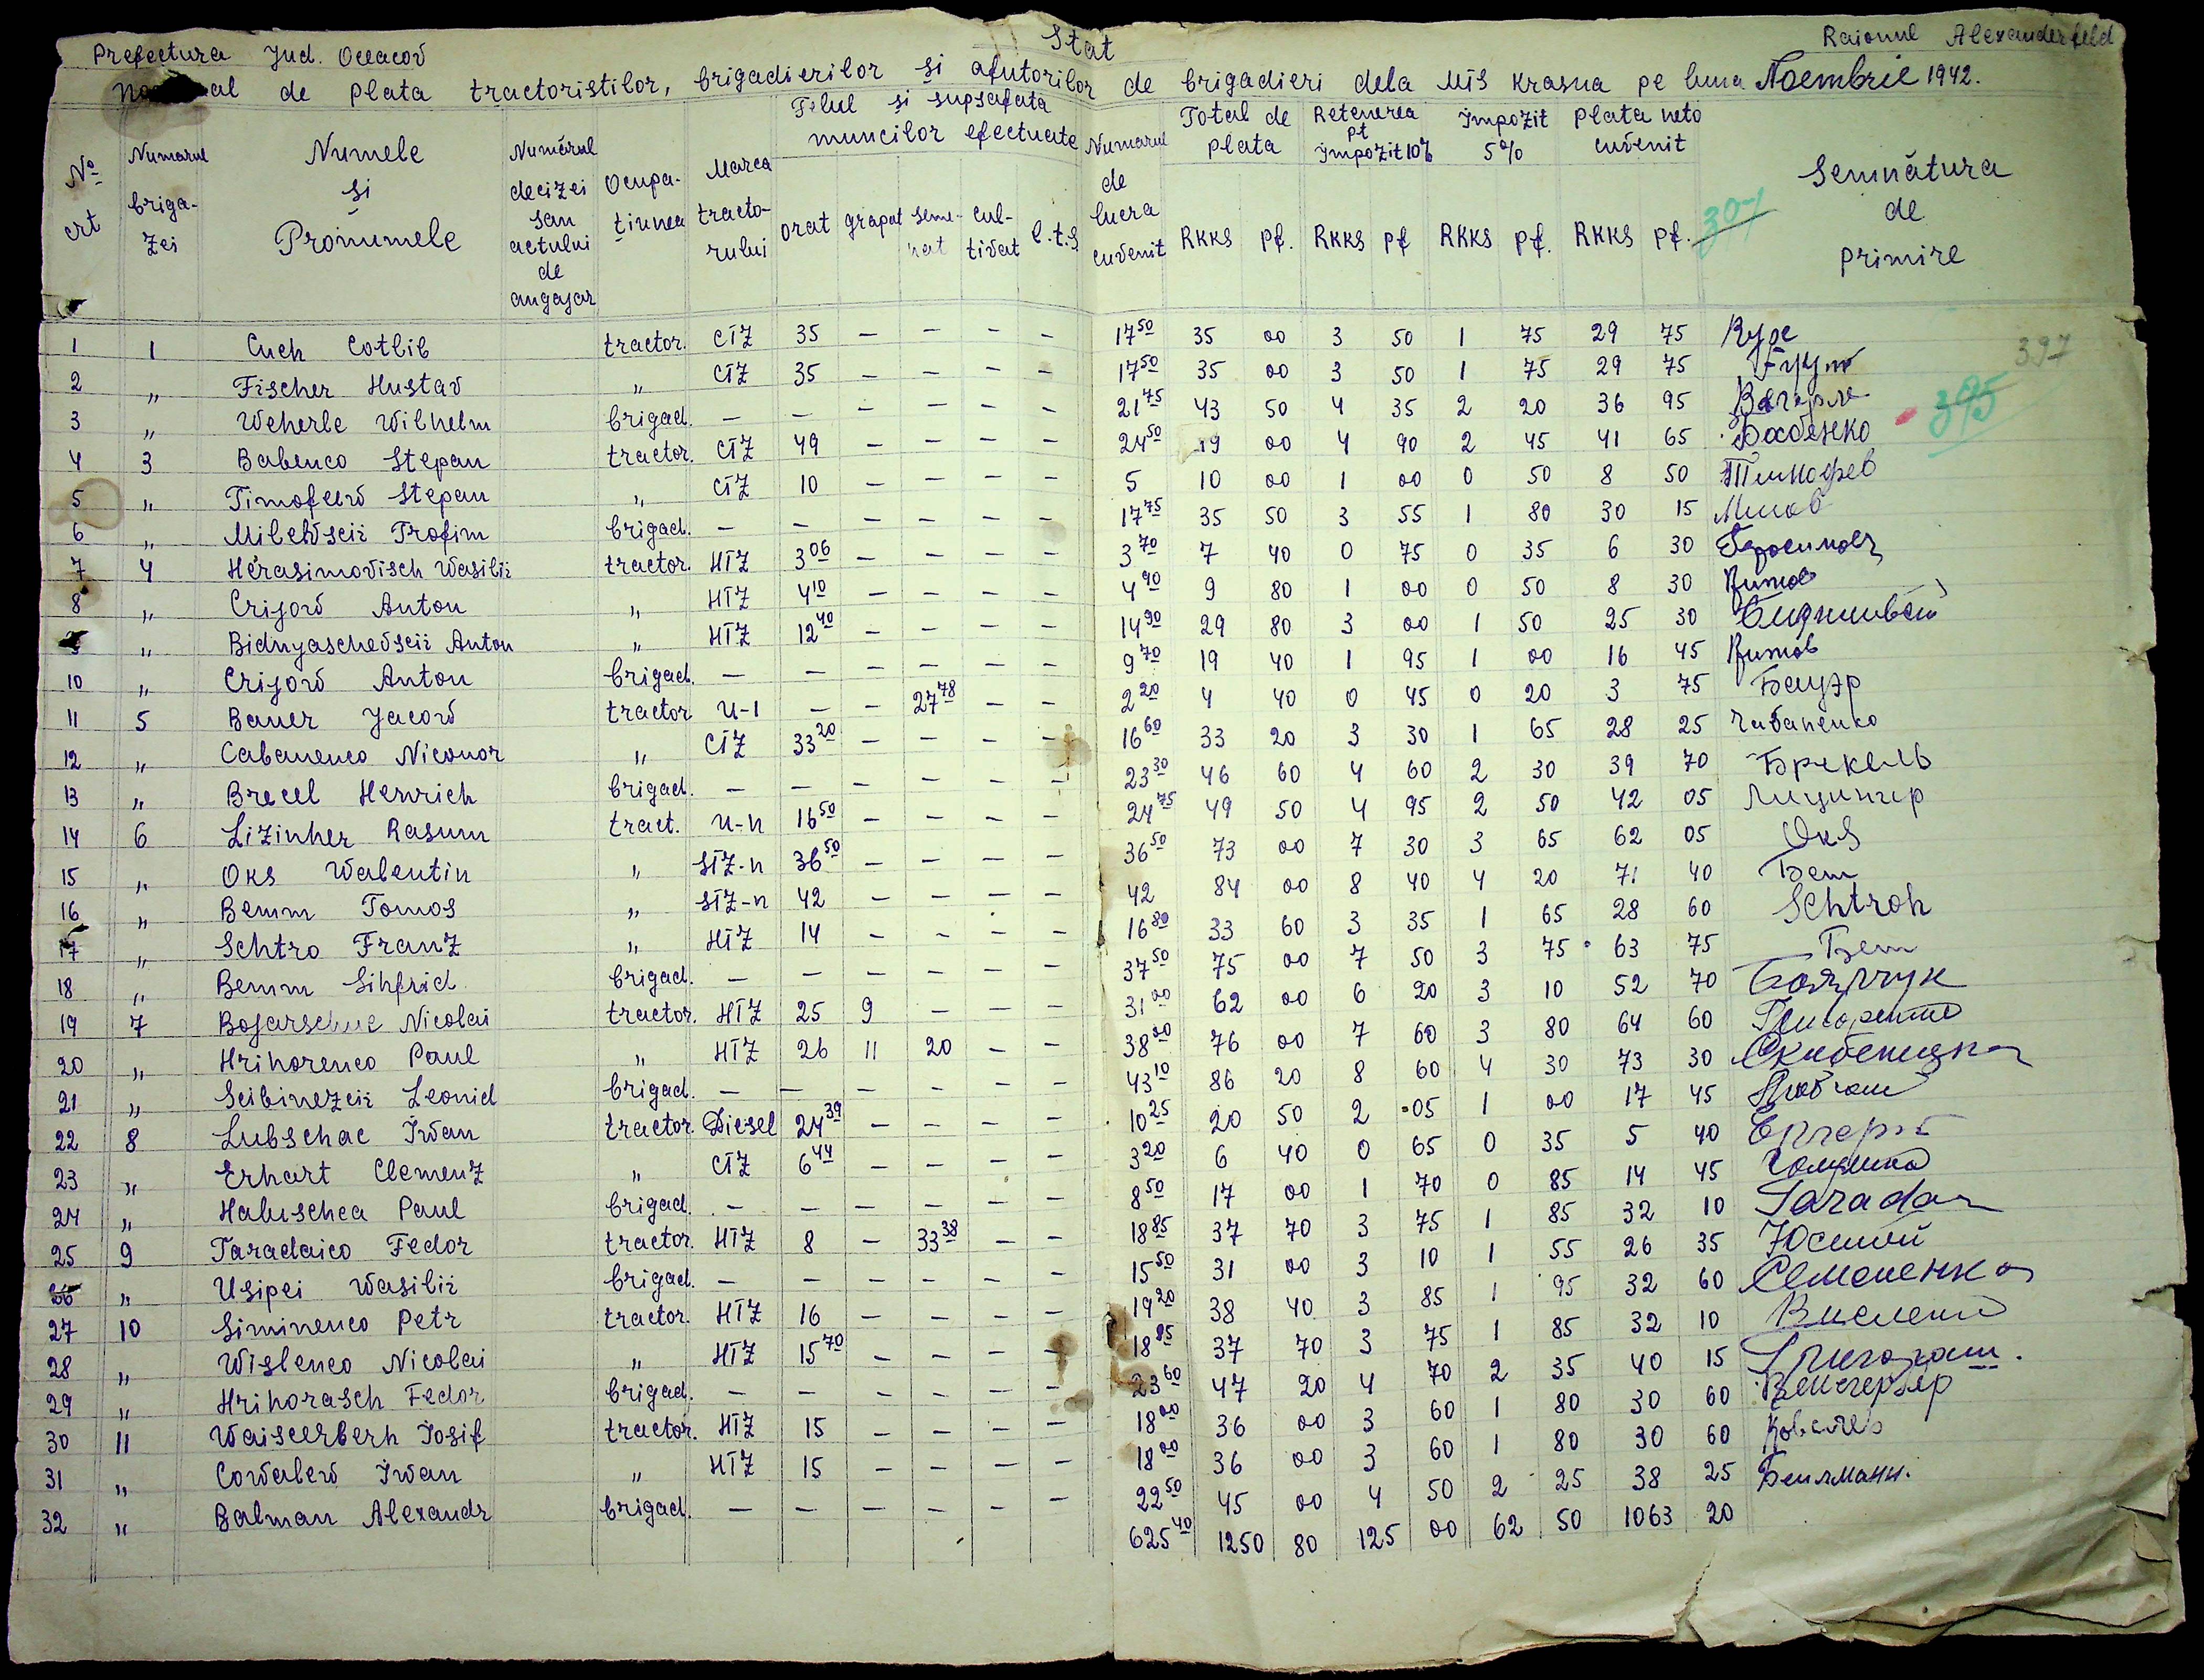 Stat
Prefectura Jud. Oceacov Raionul Alexanderfeld
de plata tractoristilor, brigadierilor și ajutorilor de brigadieri dela MTS Krasna pe luna Noembrie 1942.
No crt | Numarul brigazei | Numele și Pronumele | Numărul decizei sau actului de angajar | Ocupațiunea | Marca tractorului | Felul și supsafata muncilor efectuate: orat | grapat | semenat | cultivat | C.t.s | Numarul de lucra cuvenit | Total de plata RKKS pf. | Retenerea pt impozit 10% RKKS pf | Impozit 5% RKKS pf. | Plata neto cuvenit RKKS pf. | Semnătura de primire
307
1 1 Cuch Cotlib tractor. CTZ 35 — — — — 17 50 35 00 3 50 1 75 29 75 Кухе
397
2 „ Fischer Hustav „ CTZ 35 — — — — 17 50 35 00 3 50 1 75 29 75
3 „ Weherle Wilhelm brigad. — — — — — — 21 75 43 50 4 35 2 20 36 95 Вегерле
395
4 3 Babenco Stepan tractor. CTZ 49 — — — — 24 50 49 00 4 90 2 45 41 65 Бабенко
5 „ Timofeew Stepan „ CTZ 10 — — — — 5 10 00 1 00 0 50 8 50 Тимофев
6 „ Milewscii Trofim brigad. — — — — — — 17 75 35 50 3 55 1 80 30 15 Милев
7 4 Herasimovisch Wasilii tractor. HTZ 3 06 — — — — 3 70 7 40 0 75 0 35 6 30 Герасимовч
8 „ Crijow Anton „ HTZ 4 10 — — — — 4 90 9 80 1 00 0 50 8 30
9 „ Bidnyaschevscii Anton „ HTZ 12 40 — — — — 14 90 29 80 3 00 1 50 25 30
10 „ Crijow Anton brigad. — — — — — — 9 70 19 40 1 95 1 00 16 45
11 5 Bauer Jacow tractor U-1 — — 27 78 — — 2 20 4 40 0 45 0 20 3 75 Бауэр
12 „ Cabanenco Niconor „ CTZ 33 20 — — — — 16 60 33 20 3 30 1 65 28 25 Чабаненко
13 „ Brecel Henrich brigad. — — — — — — 23 30 46 60 4 60 2 30 39 70 Брекель
14 6 Lizinher Rasum tract. U-n 16 50 — — — — 24 75 49 50 4 95 2 50 42 05 Лицингер
15 „ Oks Walentin „ STZ-n 36 50 — — — — 36 50 73 00 7 30 3 65 62 05 Окs
16 „ Bemm Tomos „ STZ-n 42 — — — — 42 84 00 8 40 4 20 71 40 Бем
17 „ Schtro Franz „ HTZ 14 — — — — 16 80 33 60 3 35 1 65 28 60 Schtroh
18 „ Bemm Sihfrid brigad. — — — — — — 37 50 75 00 7 50 3 75 63 75 Бем
19 7 Bojarschuc Nicolai tractor. HTZ 25 9 — — — 31 00 62 00 6 20 3 10 52 70 Боярчук
20 „ Hrihorenco Paul „ HTZ 26 11 20 — — 38 00 76 00 7 60 3 80 64 60
21 „ Scibinezcii Leonid brigad. — — — — — — 43 10 86 20 8 60 4 30 73 30
22 8 Lubschac Iwan tractor. Diesel 24 39 — — — — 10 25 20 50 2 05 1 00 17 45
23 „ Erhart Clemenz „ CTZ 6 44 — — — — 3 20 6 40 0 65 0 35 5 40
24 „ Haluschca Paul brigad. — — — — — — 8 50 17 00 1 70 0 85 14 45
25 9 Taradaico Fedor tractor. HTZ 8 — 33 38 — — 18 85 37 70 3 75 1 85 32 10 Taradan
26 „ Usipei Wasilii brigad. — — — — — — 15 50 31 00 3 10 1 55 26 35
27 10 Siminenco Petr tractor. HTZ 16 — — — — 19 20 38 40 3 85 1 95 32 60 Семененко
28 „ Wislenco Nicolai „ HTZ 15 70 — — — — 18 85 37 70 3 75 1 85 32 10
29 „ Hrihorasch Fedor brigad. — — — — — — 23 60 47 20 4 70 2 35 40 15 Григораш.
30 11 Waiscerberh Iosif tractor. HTZ 15 — — — — 18 00 36 00 3 60 1 80 30 60
31 „ Cowalew Iwan „ HTZ 15 — — — — 18 00 36 00 3 60 1 80 30 60 Ковалев
32 „ Balman Alexandr brigad. — — — — — — 22 50 45 00 4 50 2 25 38 25 Беилманн.
625 40 1250 80 125 00 62 50 1063 20